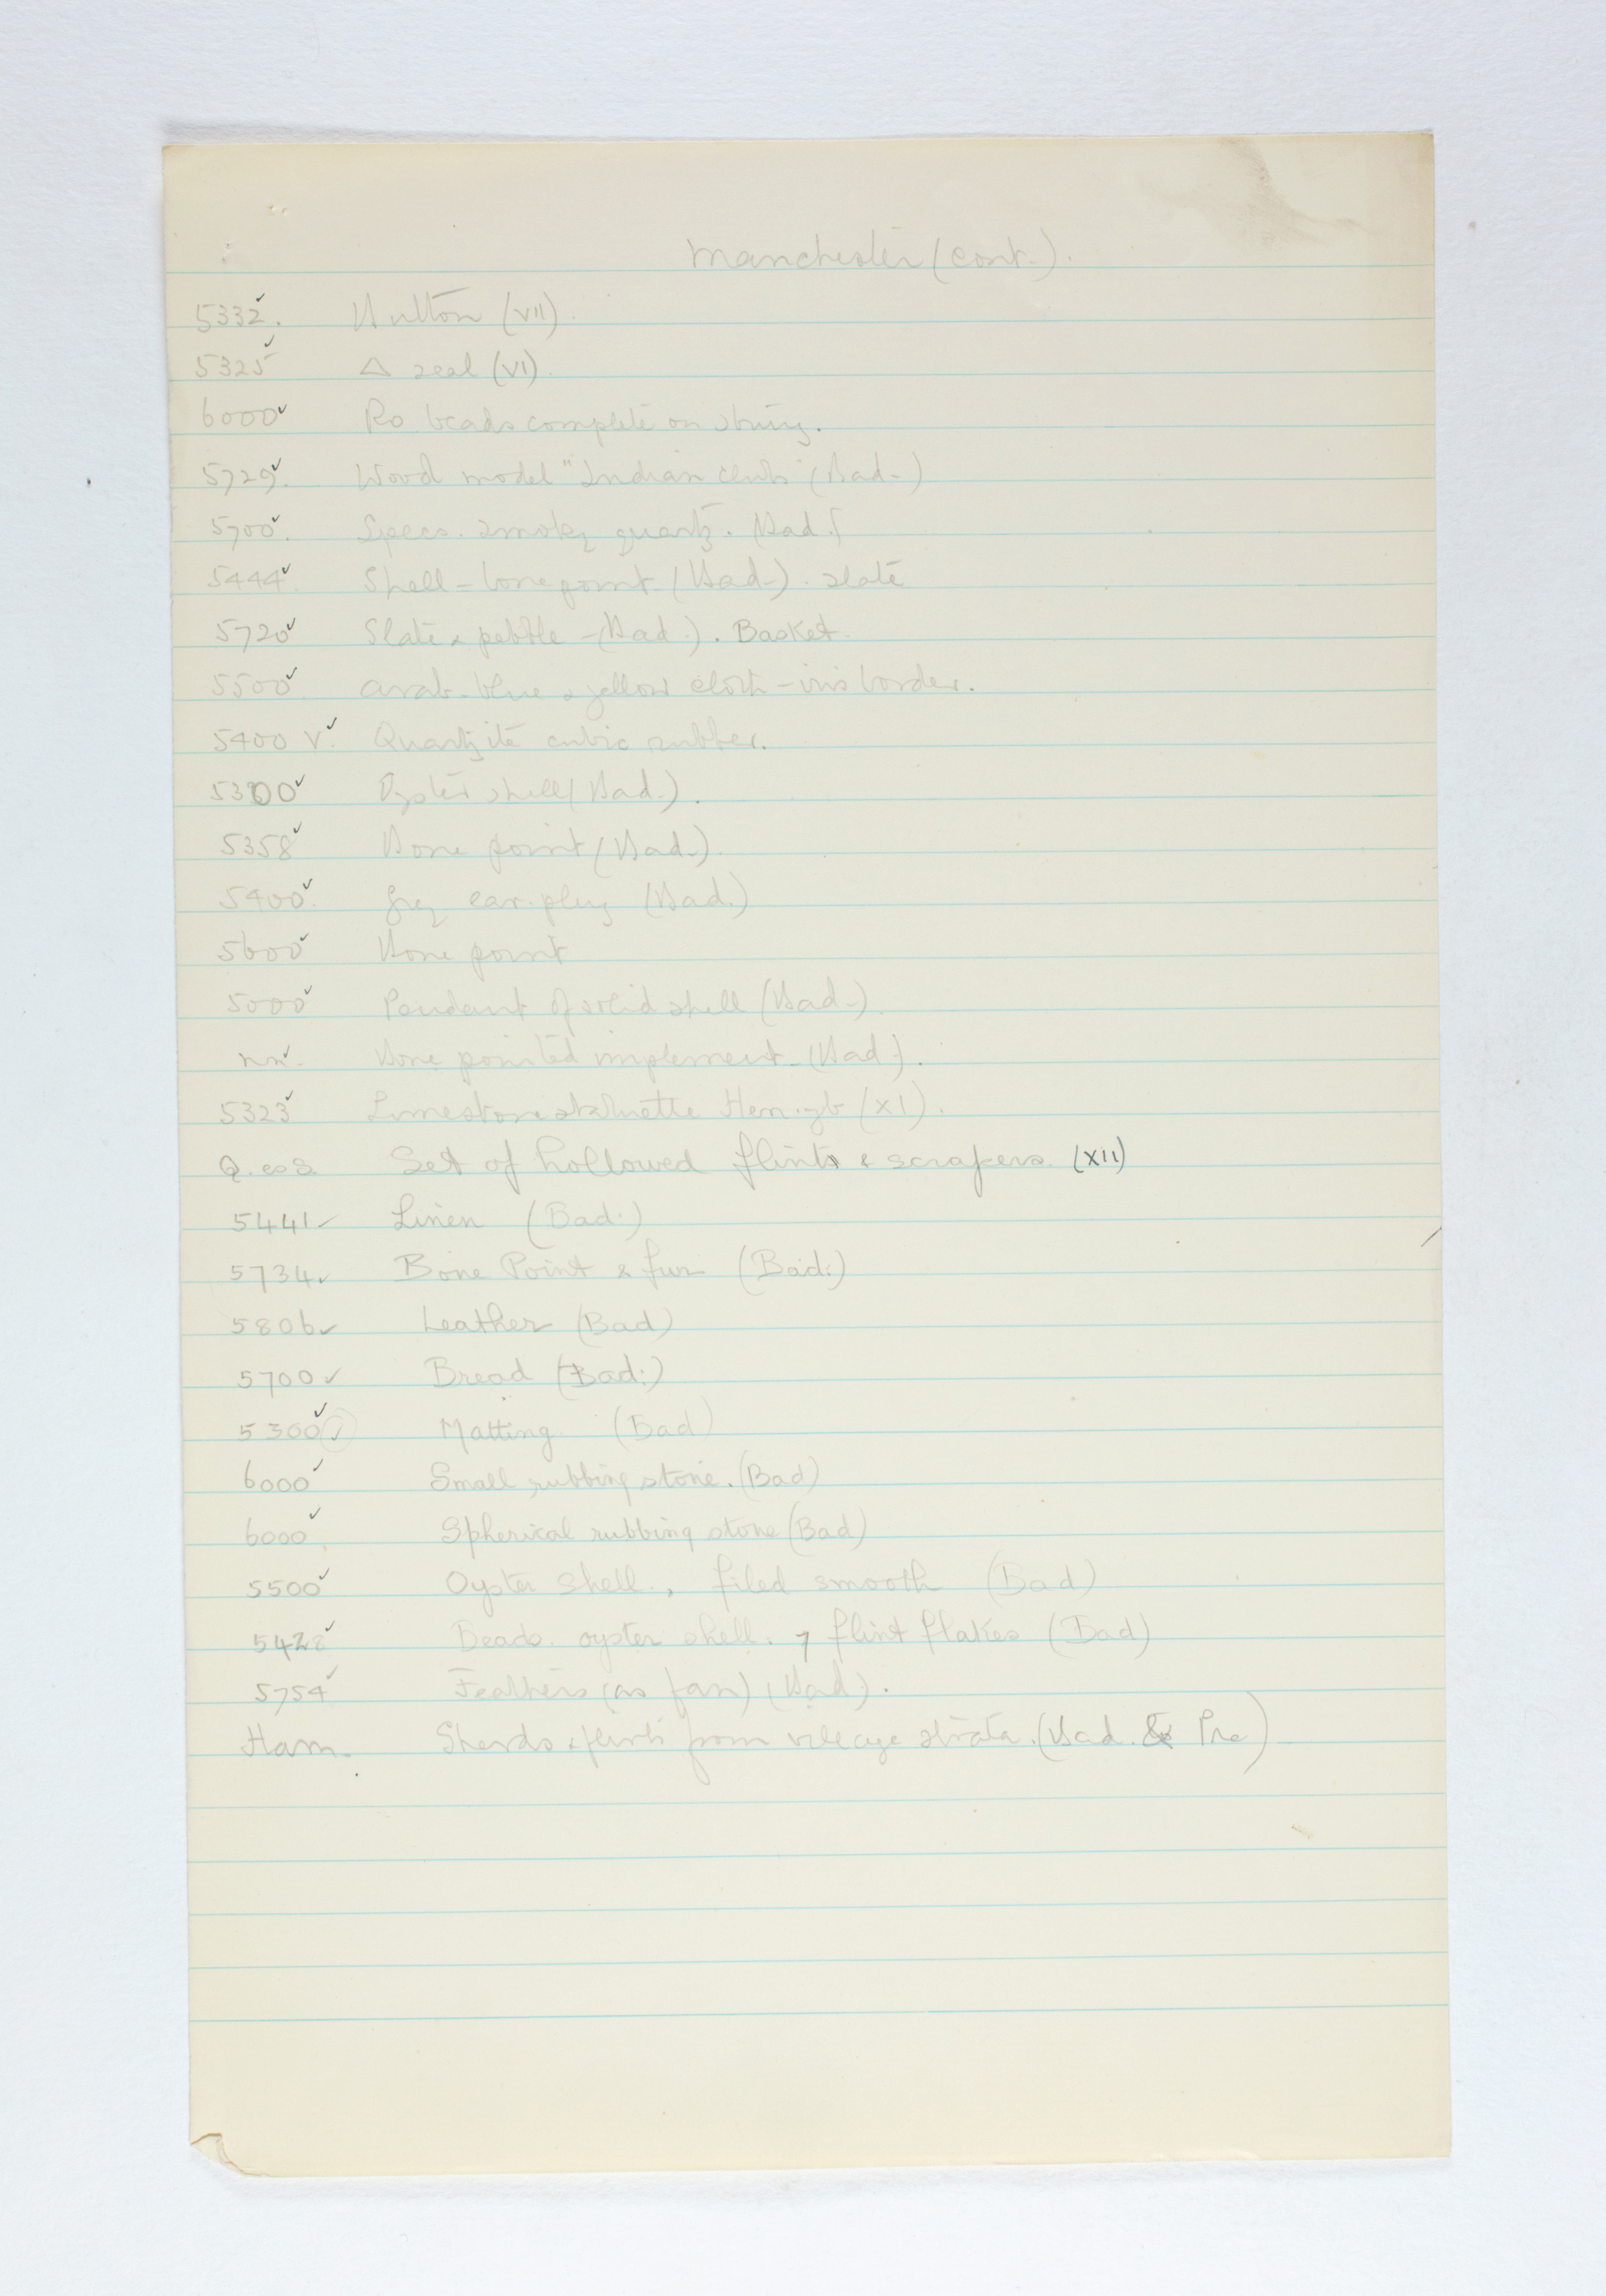 Manchester (cont.).
5332 ✓. Button (VII).
5325 ✓ △ seal (VI).
6000 ✓ Ro. beads complete on string.
5729 ✓. Wood model "Indian club" (Bad.)
5700 ✓. Specs. smoky quartz. Bad.
5444 ✓. Shell = bone point (Bad.). slate
5720 ✓ Slate & pebble - (Bad.). Basket.
5500 ✓. Arab. blue & yellow cloth - border.
5400 V ✓. Quartzite cubic rubber.
5300 ✓ Oyster shell (Bad.).
5358 ✓ Bone point (Bad.).
5400 ✓. Grey ear-plug (Bad.)
5600 ✓ Bone point
5000 ✓ Pendant of solid shell (Bad.).
nn ✓. Bone pointed implement - (Bad.).
5323 ✓ Limestone statuette (XI).
Set of hollowed flints & scrapers. (XII)
5441 ✓ Linen (Bad.)
5734 ✓ Bone Point & fur (Bad:)
5806 ✓ Leather (Bad)
5700 ✓ Bread (Bad:)
5300 ✓ ✓ Matting (Bad)
6000 ✓ Small rubbing stone. (Bad)
6000 ✓. Spherical rubbing stone (Bad)
5500 ✓ Oyster shell, filed smooth (Bad)
5428 ✓ Beads. oyster shell. 7 flint flakes (Bad)
5754 ✓ Feathers (as fan) (Bad).
Ham. Sherds & flints from village strata. (Bad. & Pre)